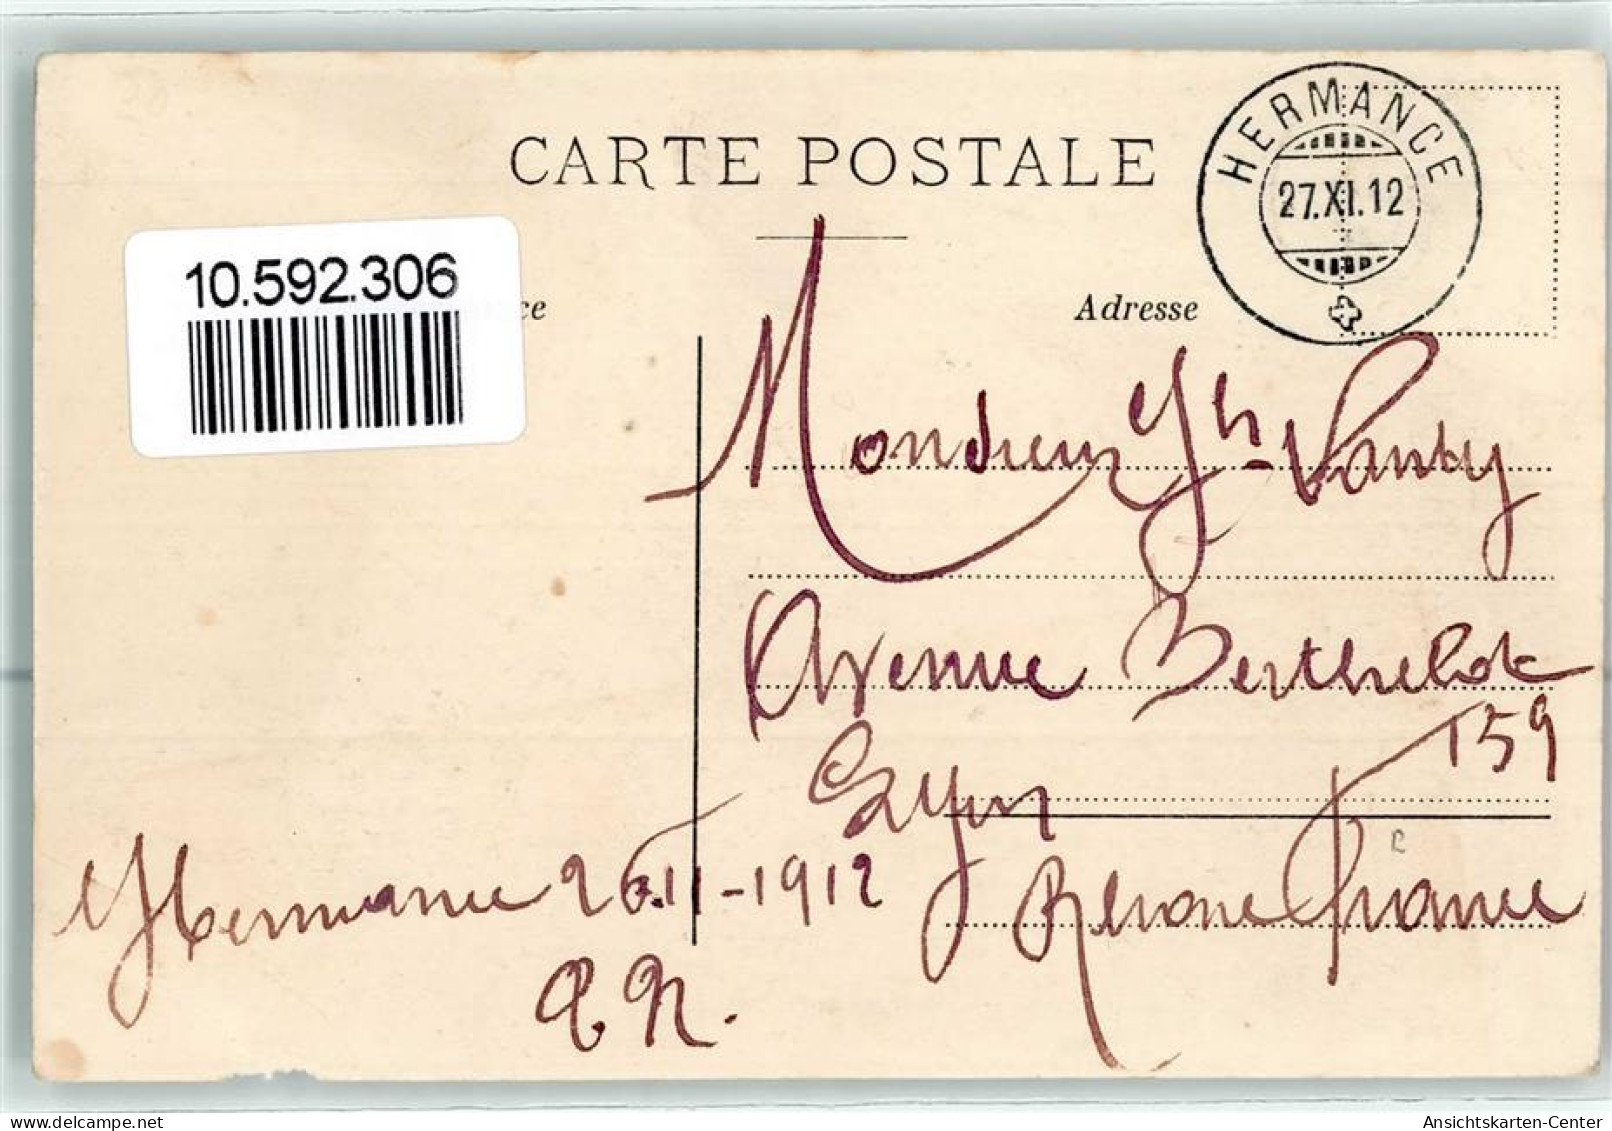 CARTE POSTALE
HERMANCE
27.XI.12
10.592.306
ce
Adresse
Monsieur Jh Vanty
Avenue Berthelot
159
Lyon
Rhone France
Hermance 26.11-1912
R.
Ansichtskarten-Center